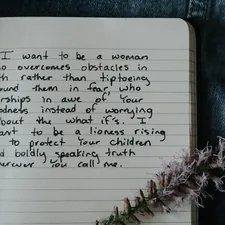 I want to be a woman
o overcomes obstacles in
th rather than tiptoeing
ound them in fear, who
rships in awe of Your
odness instead of worrying
bout the what if's. I
ant to be a lioness rising
to protect Your children
d boldly speaking truth
erever You call me.